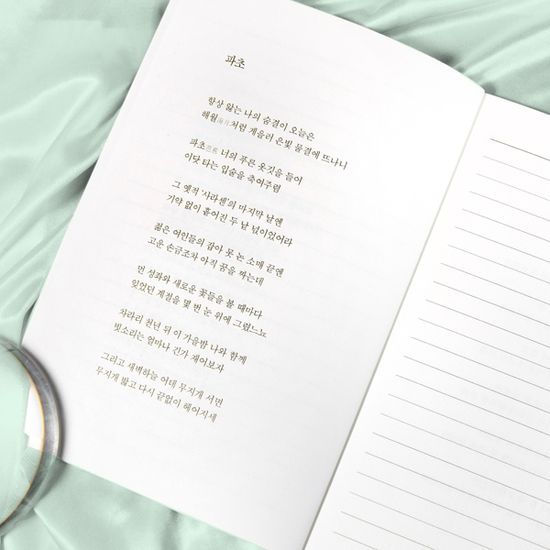 파초
항상 앓는 나의 숨결이 오늘은
해월海月처럼 게을러 은빛 물결에 뜨나니
파초芭蕉 너의 푸른 옷깃을 들어
이닷 타는 입술을 축여주렴
그 옛적 '사라센'의 마지막 날엔
기약 없이 흩어진 두 낱 넋이었어라
젊은 여인들의 잡아 못 논 소매 끝엔
고운 손금조차 아직 꿈을 짜는데
먼 성좌와 새로운 꽃들을 볼 때마다
잊었던 계절을 몇 번 눈 위에 그렸느뇨
차라리 천년 뒤 이 가을밤 나와 함께
빗소리는 얼마나 긴가 재어보자
그리고 새벽하늘 어데 무지개 서면
무지개 밟고 다시 끝없이 헤어지세